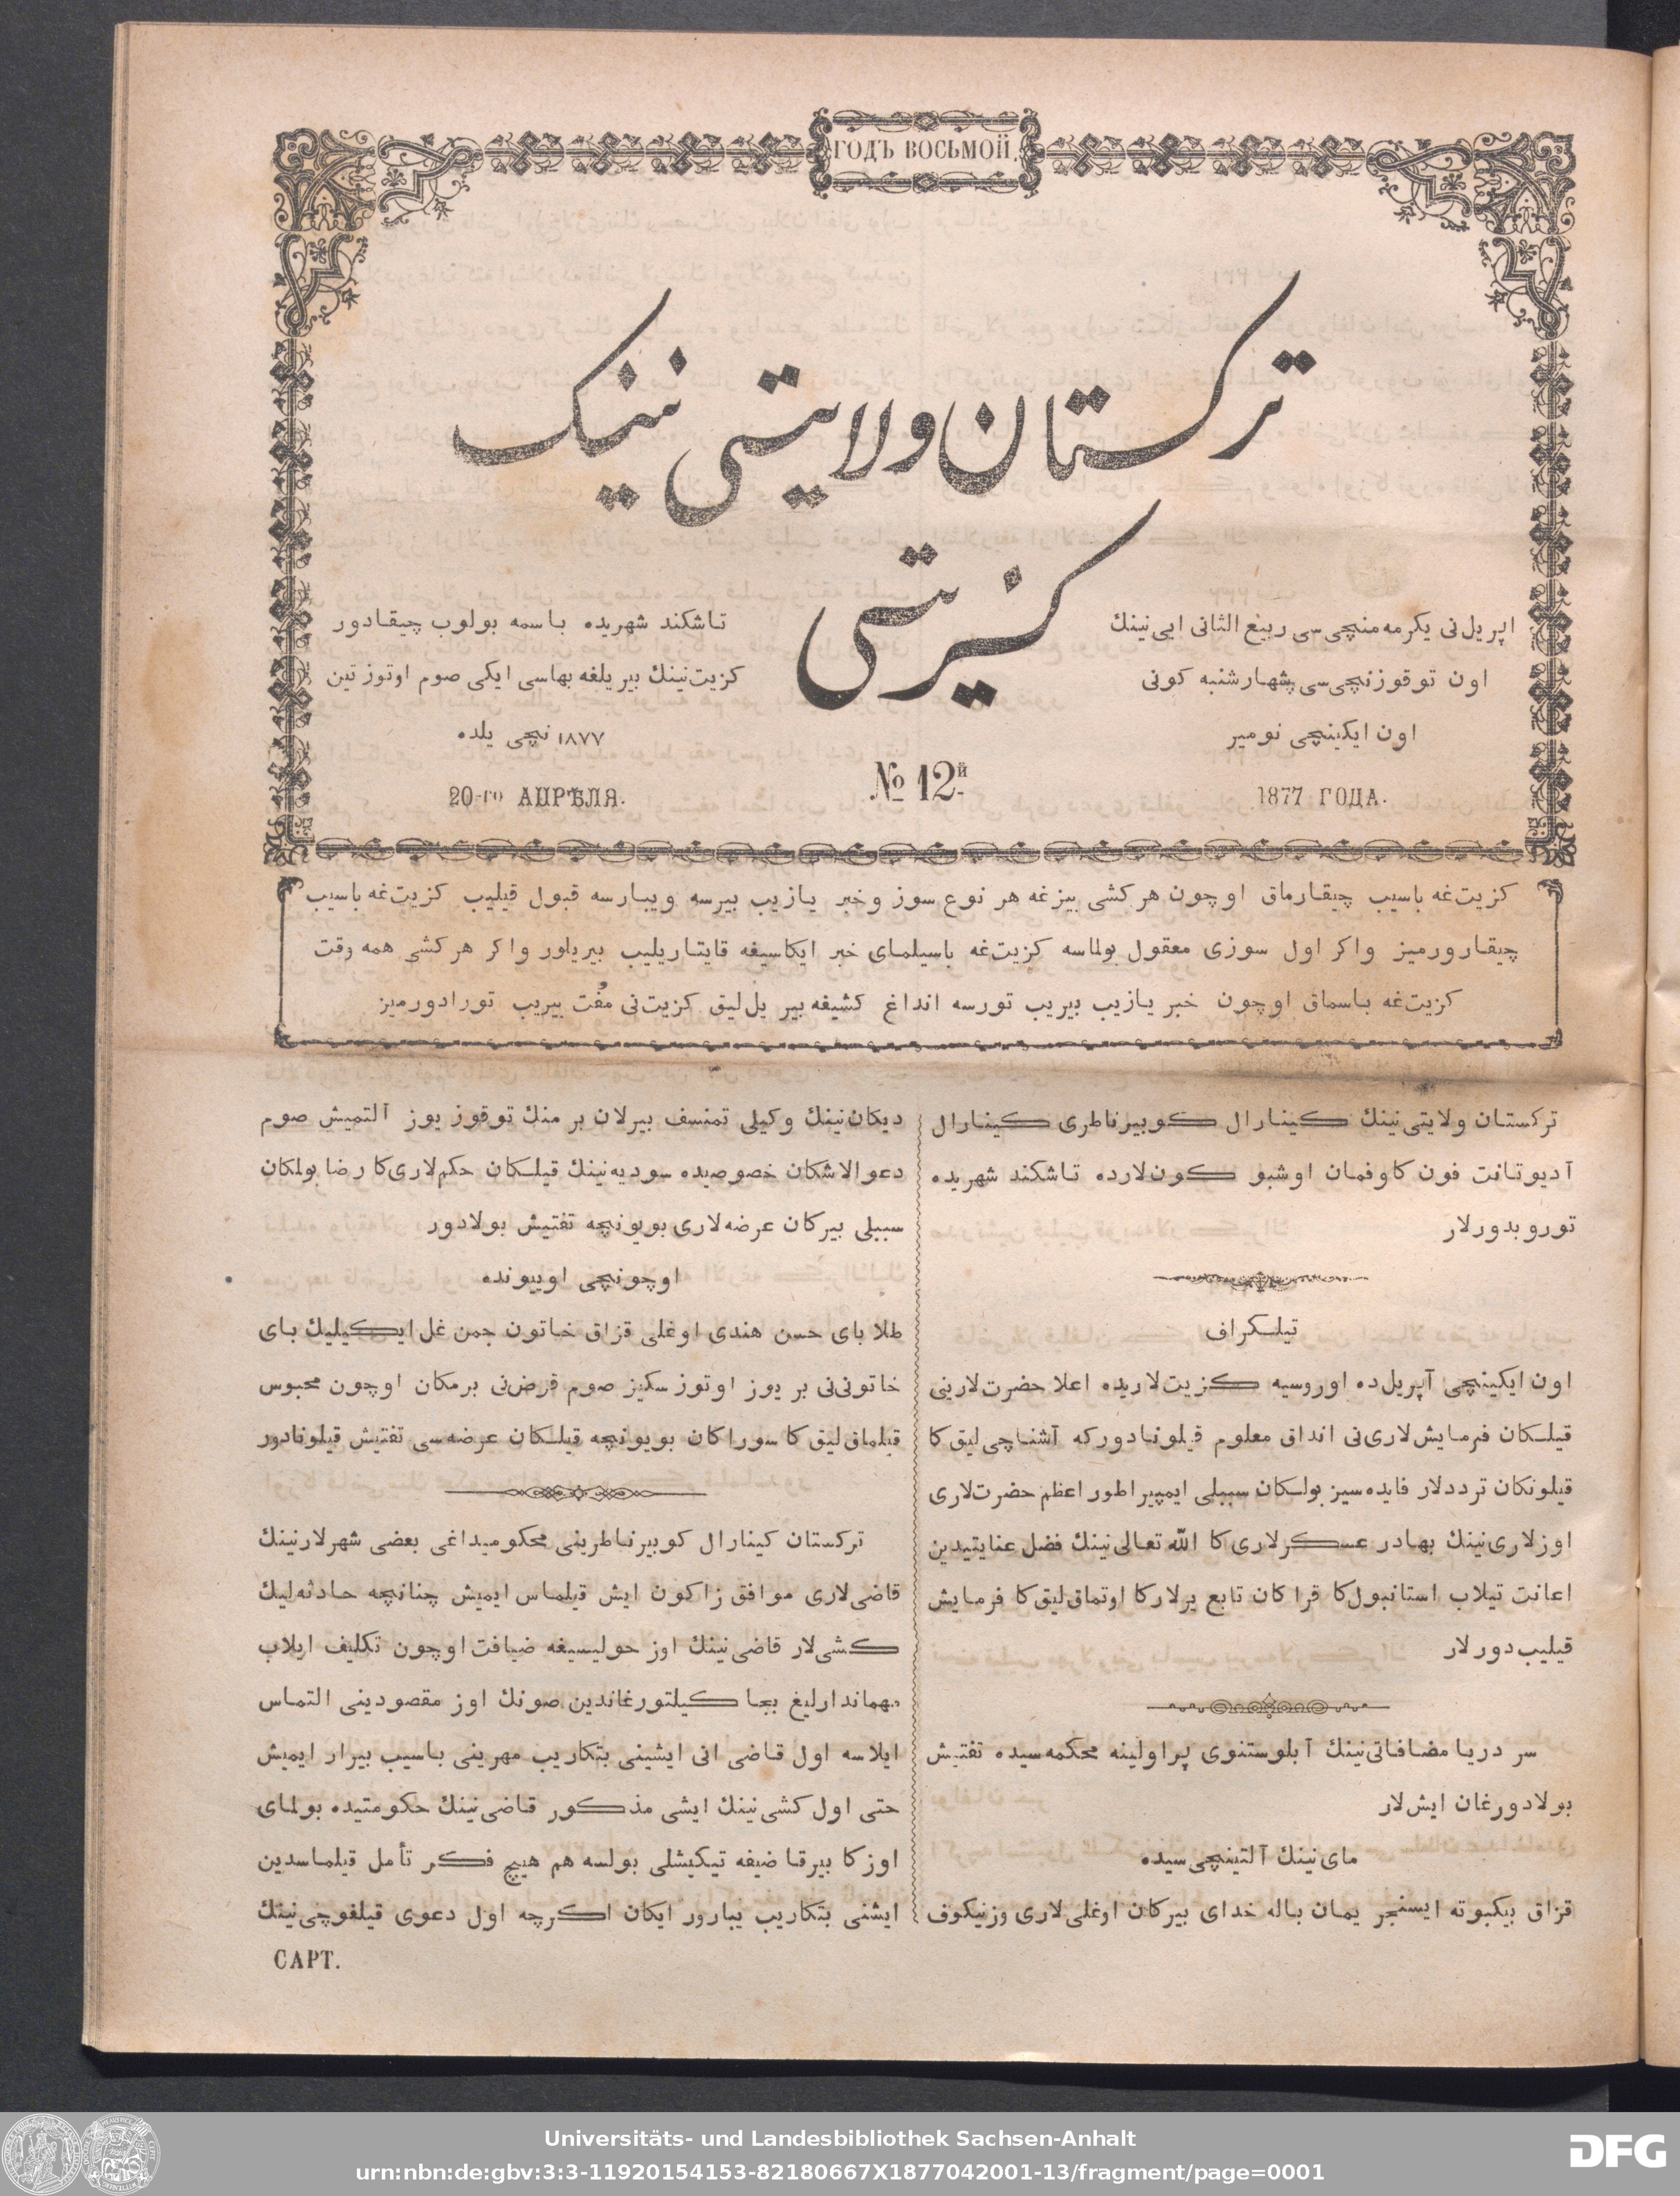 ГОДЪ ВОСЬМОЙ.
ترکستان ولایتی نینک
کزیتی
اپریل‌نی یکرمه‌منچی‌سی ربیع الثانی ایی‌نینك
اون توقوزنچی‌سی چهارشنبه کونی
اون ایکینچی نومیر
1877 ГОДА.
№ 12й
تاشکند شهریده باسمه بولوب چیقادور
کزیت‌نینك بیر یلغه بهاسی ایکی صوم اوتوز تین
١٨٧٧ نچی یلده
20-го АПРѢЛЯ.
کزیت‌غه باسیب چیقارماق اوچون هر کشی بیزغه هر نوع سوز و خبر یازیب بیرسه ویبارسه قبول قیلیب کزیت‌غه باسیب
چیقارورمیز واکر اول سوزی معقول بولماسه کزیت‌غه باسیلمای خبر ایکاسیغه قایتاریلیب بیریلور واکر هر کشی همه وقت
کزیت‌غه باسماق اوچون خبر یازیب بیریب تورسه انداغ کشیغه بیر یل‌لیق کزیت‌نی مفت بیریب تورادورمیز
ترکستان ولایتی‌نینك کینارال کوبیرناطری کینارال
آدیوتانت فون کاوفمان اوشبو کون‌لارده تاشکند شهریده
توروبدورلار
تیلکراف
اون ایکینچی آپریل‌ده اوروسیه کزیت‌لاریده اعلا حضرت‌لارینی
قیلکان فرمایش‌لاری‌نی انداق معلوم قیلونادورکه آشناچی‌لیق‌کا
قیلونکان ترددلار فایده‌سیز بولکان سببلی ایمپیراطور اعظم حضرت‌لاری
اوزلاری‌نینك بهادر عسکرلاری‌کا الله تعالی‌نینك فضل عنایتیدین
اعانت تیلاب استانبول‌کا قراکان تابع یرلارکا اوتماق‌لیق‌کا فرمایش
قیلیب‌دورلار
سر دریا مضافاتی‌نینك آبلوستنوی پراولینه محکمه‌سیده تفتیش
بولادورغان ایش‌لار
مای‌نینك آلتینچی‌سیده
قزاق بیکبوته ایسنجر یمان باله خدای بیرکان اوغلی‌لاری وزنیکوف
دیکان‌نینك وکیلی تمنسف بیرلان بر منك توقوز یوز آلتمیش صوم
دعوالاشکان خصوصیده سودیه‌نینك قیلکان حکم‌لاری‌کا رضا بولمکان
سببلی بیرکان عرضه‌لاری بویونچه تفتیش بولادور
اوچونچی اوییونده
طلا بای حسن هندی اوغلی قزاق خاتون جمن غل‌ایکیلیك بای
خاتونی‌نی بر یوز اوتوز سکیز صوم قرض‌نی برمکان اوچون محبوس
قیلماق‌لیق‌کا سوراکان بویونچه قیلکان عرضه‌سی تفتیش قیلونادور
ترکستان کینارال کوبیرناطرینی محکومیداغی بعضی شهرلارنینك
قاضی‌لاری موافق زاکون ایش قیلماس ایمیش چنانچه حادثه‌لیك
کشی‌لار قاضی‌نینك اوز حولیسیغه ضیافت اوچون تکلیف ایلاب
مهماندارلیغ بجا کیلتورغاندین صونك اوز مقصودینی التماس
ایلاسه اول قاضی انی ایشینی بتکاریب مهرینی باسیب بیرار ایمیش
حتی اول کشی‌نینك ایشی مذکور قاضی‌نینك حکومتیده بولمای
اوزکا بیرقاضیغه تیکیشلی بولسه هم هیچ فکر تأمل قیلماسدین
ایشنی بتکاریب یبارور ایکان اکرچه اول دعوی قیلغوچی‌نینك
САРТ.
Universitäts- und Landesbibliothek Sachsen-Anhalt
urn:nbn:de:gbv:3:3-11920154153-82180667X1877042001-13/fragment/page=0001
DFG